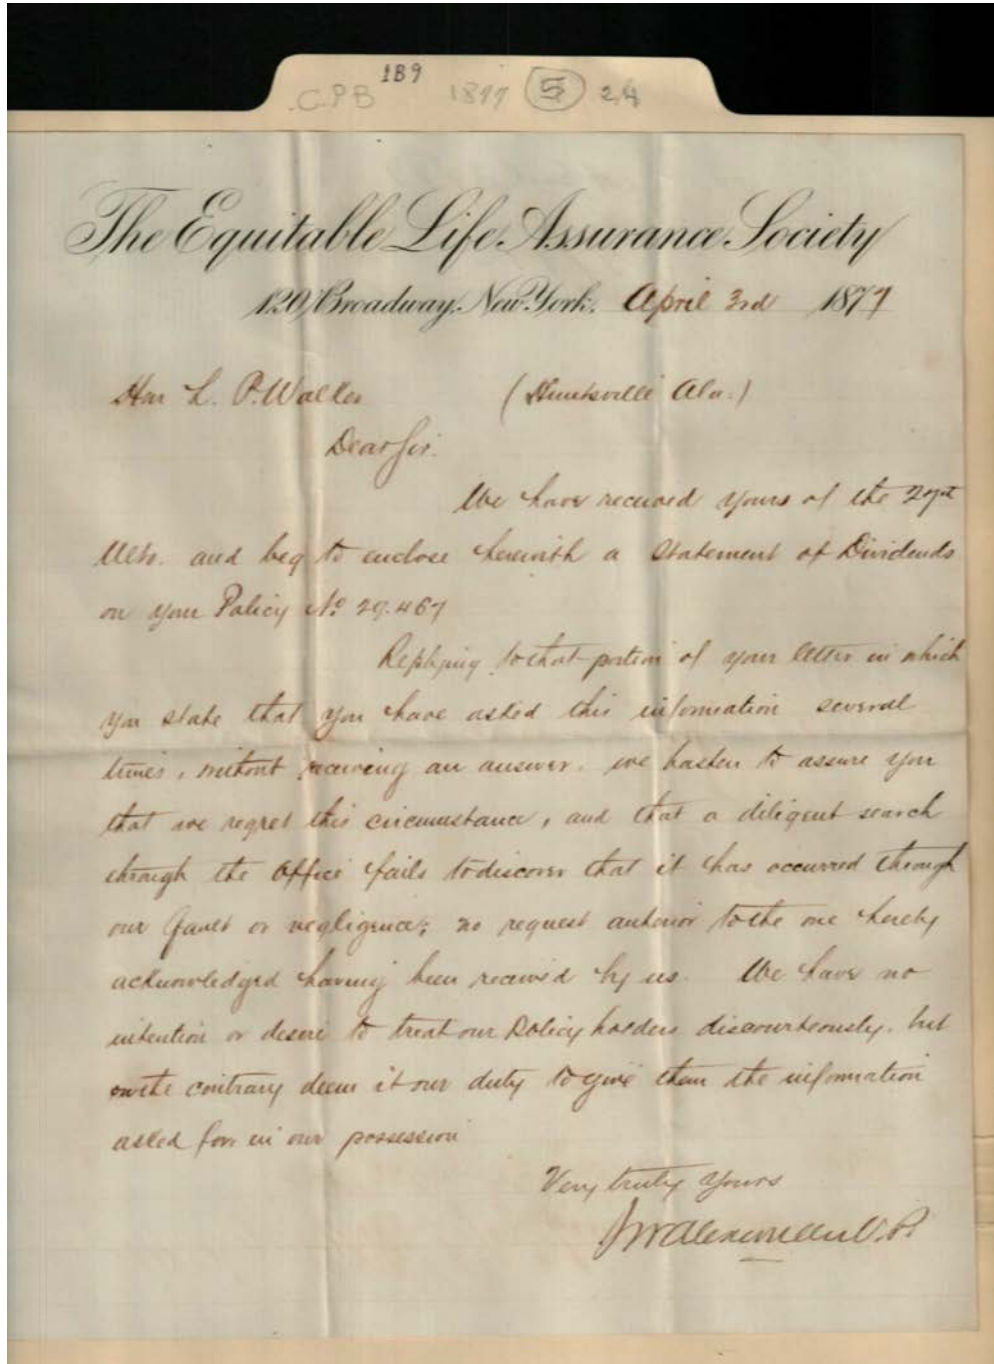 189
C.P.B 1877 5 24
The Equitable Life Assurance Society
120 Broadway, New York. April 3rd 1877
Hon L. P. Walker (Huntsville Ala.)
Dear Sir.
We have received yours of the
Ulto. and beg to enclose herewith a Statement of Dividends
on your Policy No 29.467
Replying to that portion of your letter in which
you state that you have asked this information several
times, without receiving an answer. we hasten to assure you
that we regret this circumstance, and that a diligent search
through the Office fails to discover that it has occurred through
our fault or negligence; no request anterior to the one hereby
acknowledged having been received by us. We have no
intention or desire to treat our Policy holders discourteously. but
on the contrary deem it our duty to give them the information
asked for in our possession
Very truly yours
JWAlexander V.P.